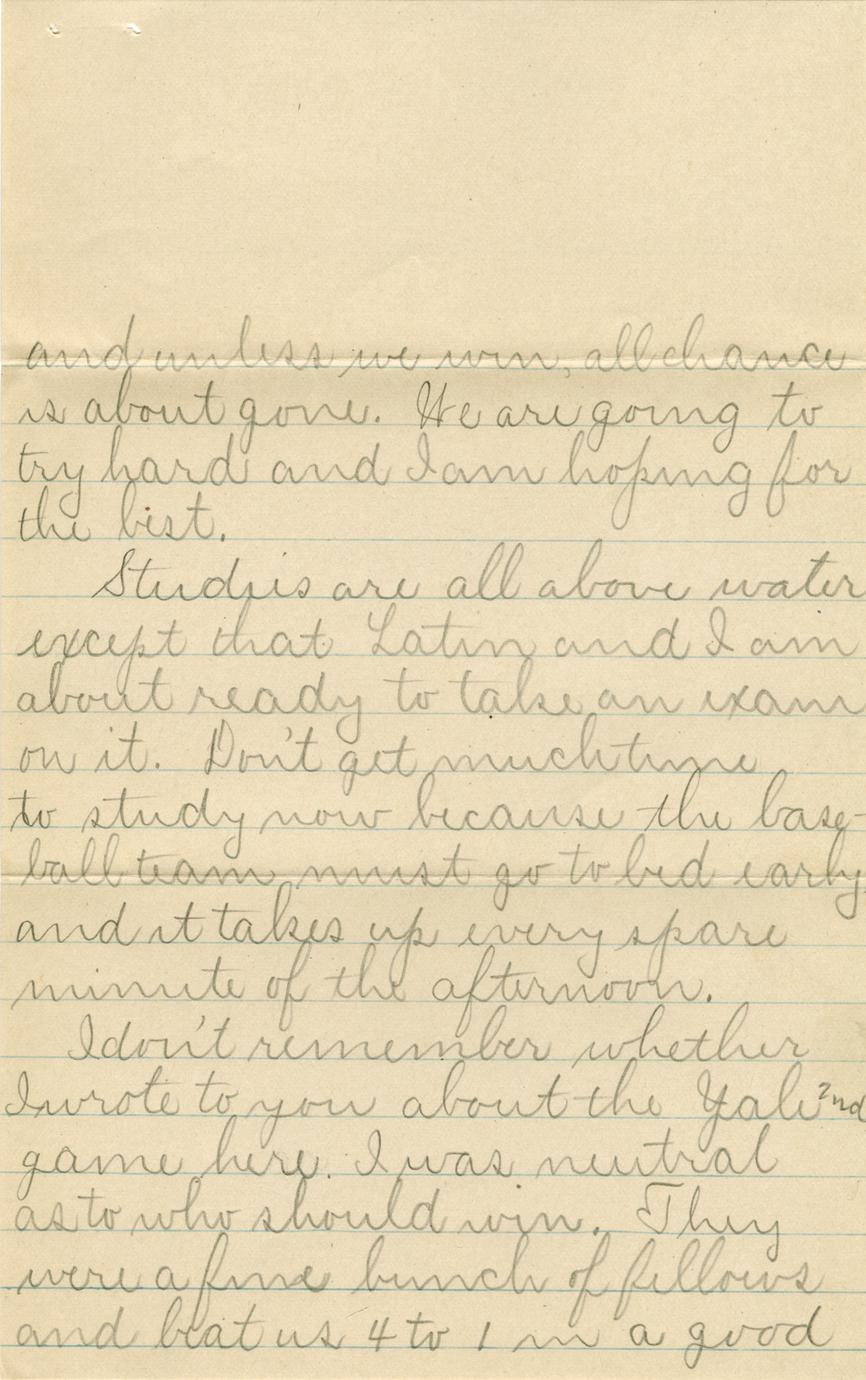 and unless we win, all chance
is about gone. We are going to
try hard and I am hoping for
the best.
Studies are all above water
except that Latin and I am
about ready to take an exam
on it. Don't get much time
to study now because the base-
ball team must go to bed early
and it takes up every spare
minute of the afternoon.
I don't remember whether
I wrote to you about the Yale 2nd
game here. I was neutral
as to who should win. They
were a fine bunch of fellows
and beat us 4 to 1 in a good